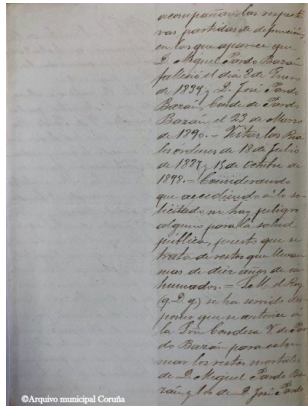 acompañan las respecti
vas partidas de defunción
en las que aparece que
D. Miguel Pardo Bazán
falleció el día 2 de Enero
de 1839 y D. José Pardo
Bazán, Conde de Pardo
Bazán el 23 de Marzo
de 1890.- Vistas las Rea
les órdenes de 18 de Julio
de 1887 y 15 de Octubre de
1898.- Considerando
que accediendo a lo so
licitado no hay peligro
alguno para la salud
pública, puesto que se
trata de restos que llevan
mas de diez años de in
humados.= S. M. el Rey
(q. D. g.) se ha servido dis
poner que se autorice a
la Sra. Condesa V. de Par
do Bazán para exhu
mar los restos mortales
de D. Miguel Pardo Ba
zán y los de D. José Pardo
©Arquivo municipal Coruña